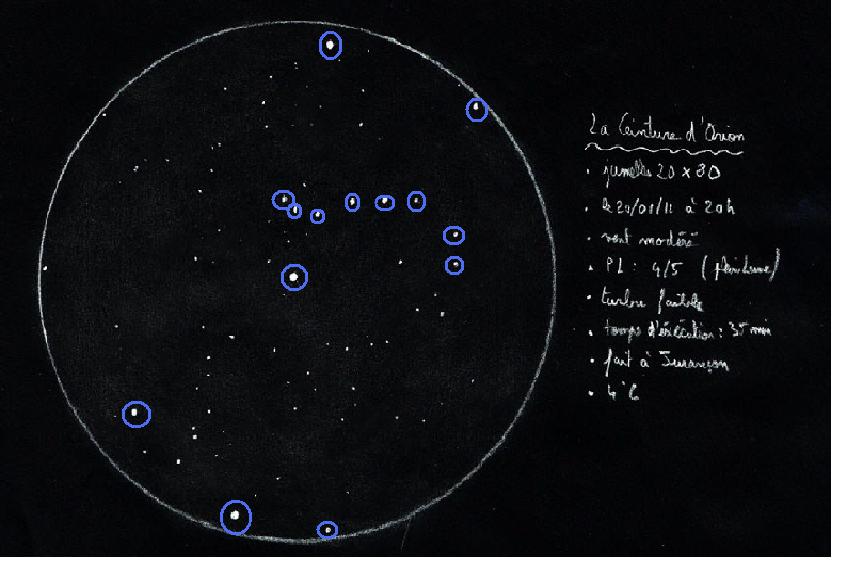 La Ceinture d'Orion
• jumelles 20 x 80
• le 20/01/11 à 20h
• vent modéré
• PL : 4/5 (pleine lune)
• turbu faible
• temps d'exécution : 35 min
• fait à Jurançon
• 4°C